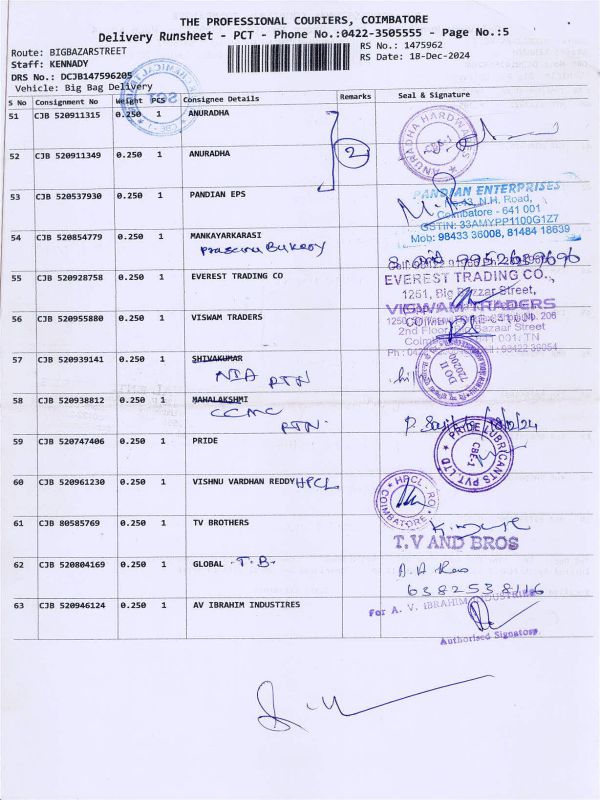 THE PROFESSIONAL COURIERS, COIMBATORE
Delivery Runsheet - PCT - Phone No.:0422-3505555 - Page No.:5
Route: BIGBAZARSTREET
RS No.: 1475962
Staff: KENNADY
RS Date: 18-Dec-2024
DRS No.: DCJB147596205
Vehicle: Big Bag Delivery
S No Consignment No Weight PCS Consignee Details Remarks Seal & Signature
51 CJB 520911315 0.250 1 ANURADHA
ANURADHA HARDWARES
52 CJB 520911349 0.250 1 ANURADHA 2
53 CJB 520537930 0.250 1 PANDIAN EPS
PANDIAN ENTERPRISES
N.H. Road,
Coimbatore - 641 001
GSTIN: 33AMYPP1100G1Z7
Mob: 98433 36008, 81484 18639
54 CJB 520854779 0.250 1 MANKAYARKARASI
Bakery
55 CJB 520928758 0.250 1 EVEREST TRADING CO
EVEREST TRADING CO.,
1251, Big Bazzar Street,
56 CJB 520955880 0.250 1 VISWAM TRADERS
VISWAM TRADERS
57 CJB 520939141 0.250 1 SHIVAKUMAR
NIA RTN
58 CJB 520938812 0.250 1 MAHALAKSHMI
CCMC
RTN
59 CJB 520747406 0.250 1 PRIDE
PRIDE LUBRICANTS PVT LTD
CBE-1
60 CJB 520961230 0.250 1 VISHNU VARDHAN REDDY HPCL
HPCL - RO
COIMBATORE
61 CJB 80585769 0.250 1 TV BROTHERS
T.V AND BROS
62 CJB 520804169 0.250 1 GLOBAL T.B.
6382538116
63 CJB 520946124 0.250 1 AV IBRAHIM INDUSTIRES
For A. V. IBRAHIM INDUSTRIES
Authorised Signatory